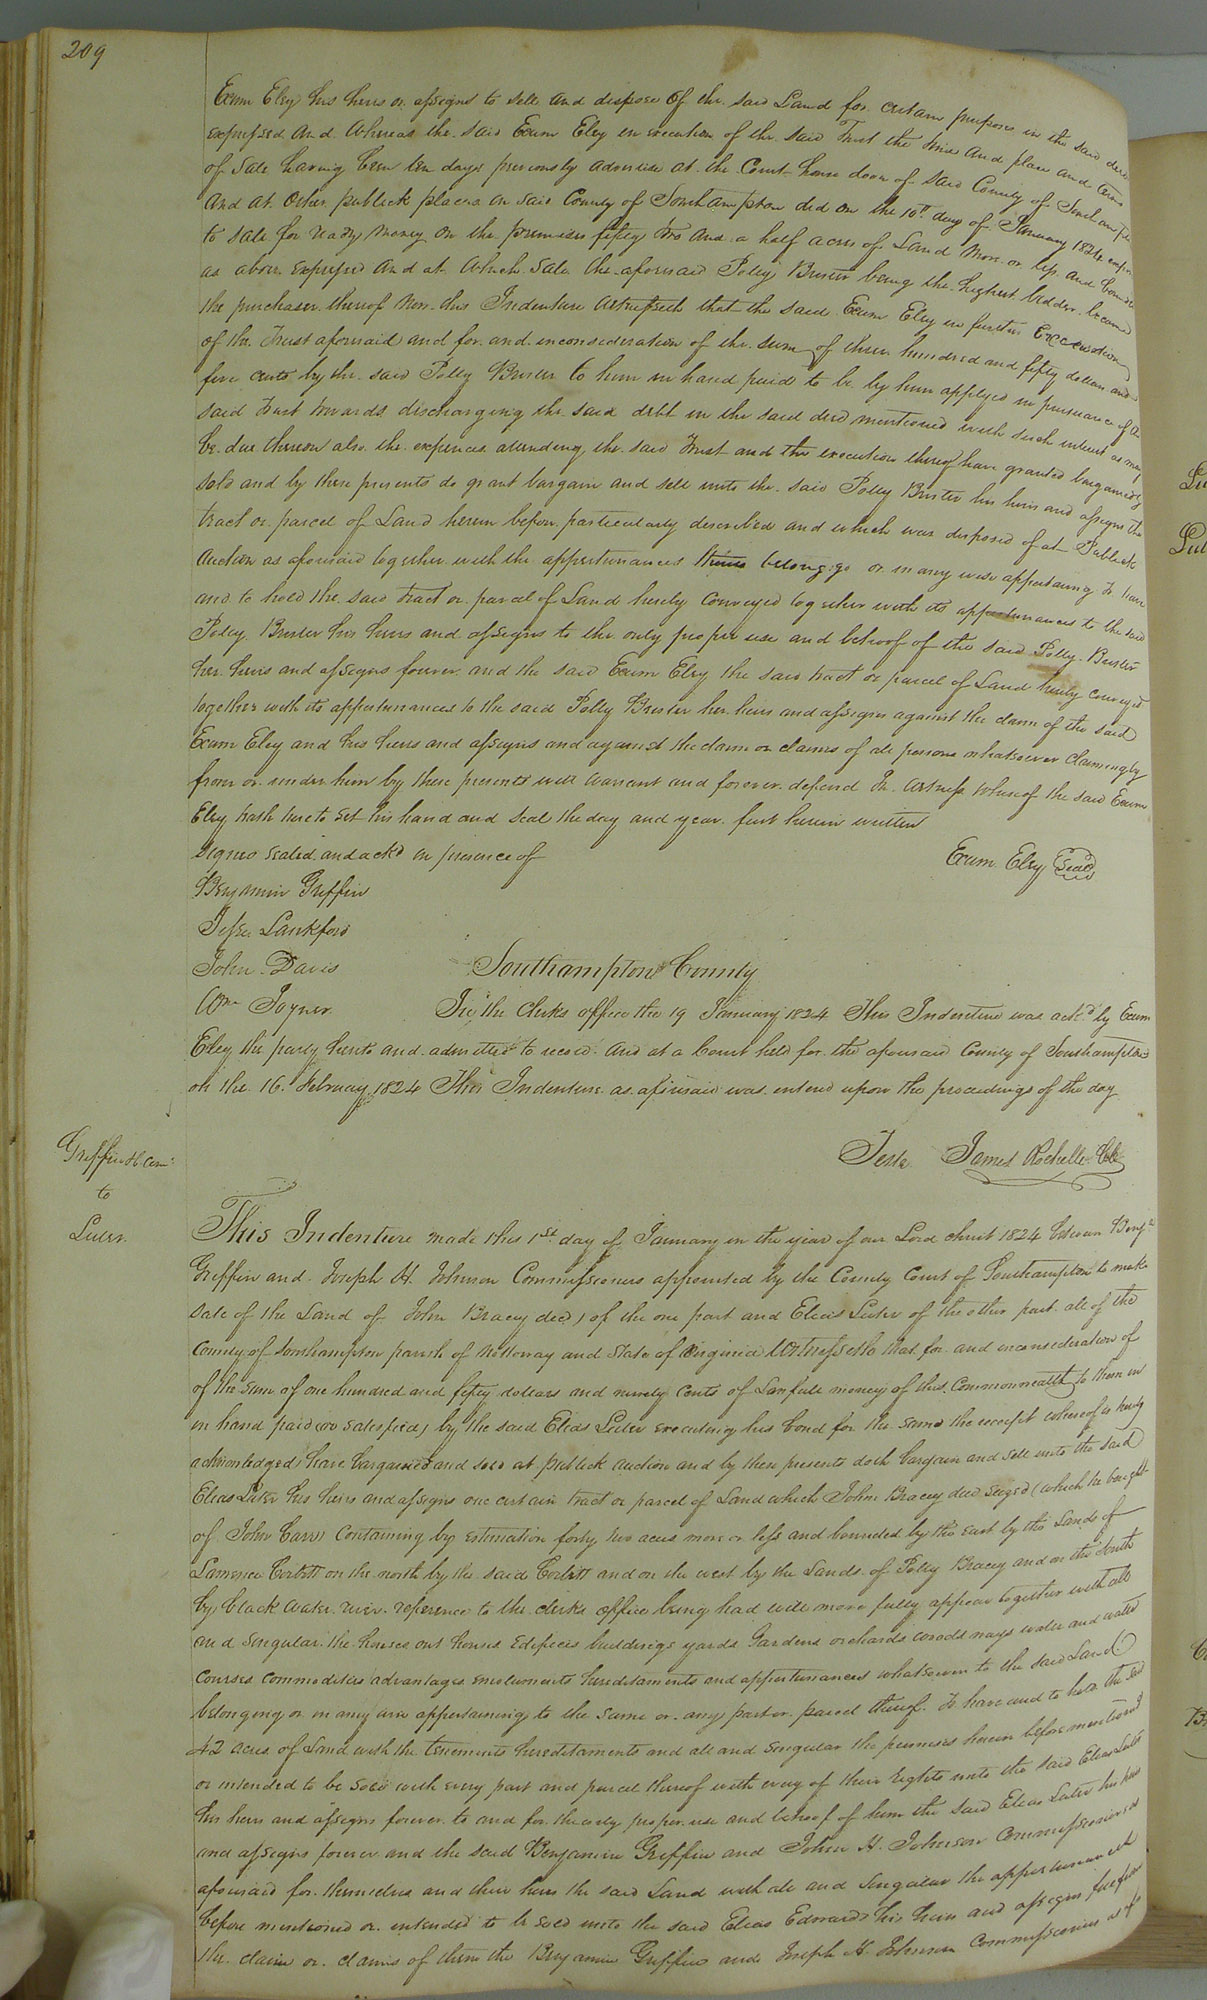 209
Exum Eley his heirs or assigns to sell and dispose of the said Land for certain purposes in the said deed
expressed and Whereas the said Exum Eley in execution of the said Trust the time and place and terms
of Sale having been ten days previously advertise at the Court house door of said County of Southampton
and at other publick places in said County of Southampton did on the 10th day of January 1824 expose
to sale for ready money on the premises fifty two and a half acres of Land more or less and bounded
as above expressed and at which sale the aforesaid Polly Brister being the highest bidder became
the purchaser thereof Now this Indenture witnesseth that the said Exum Eley in further Execution
of the Trust aforesaid and for and inconsideration of the sum of three hundred and fifty dollars and
five cents by the said Polly Brister to him in hand paid to be by him applyed in pursuance of the
said trust towards discharging the said debt in the said deed mentioned with such interest as may
be due thereon also the expences attending the said Trust and the execution thereof have granted bargained &
sold and by these presents do grant bargain and sell unto the said Polly Brister her heirs and assigns the
tract or parcel of Land herein before particularly described and which was disposed of at Publick
Auction as aforesaid together with the appurtenances belonging or in any wise appertaining To have
and to hold the said tract or parcel of Land hereby conveyed together with its appurtenances to the said
Polly Brister his heirs and assigns to the only proper use and behoof of the said Polly Brister
her heirs and assigns forever and the said Exum Eley the said tract or parcel of Land hereby conveyed
together with its appurtenances to the said Polly Brister her heirs and assigns against the claim of the said
Exum Eley and his heirs and assigns and against the claim or claims of all persons whatsoever claiming by
from or under him by these presents will warrant and forever defend In witness whereof the said Exum
Eley hath hereto set his hand and seal the day and year first herein written
Signed sealed and ackd in presence of
Exum Eley Seal
Benjamin Griffin
Jesse Lankford
John Davis
Southampton County
Wm Joyner
In the clerks office the 19 January 1824 This Indenture was ackd by Exum
Eley the party hereto and admitted to record And at a Court held for the aforesaid County of Southampton
on the 16 February 1824 This Indenture as aforesaid was entered upon the proceedings of the day
Teste James Rochelle Clk
Griffin & Com:
to
Luter
This Indenture made this 1st day of January in the year of our Lord christ 1824 between Benja
Griffin and Joseph H. Johnson Commissioners appointed by the County Court of Southampton to make
sale of the Land of John Bracey decd of the one part and Elias Luter of the other part all of the
County of Southampton parish of Nottoway and State of Virginia Witnesseth that for and inconsideration of
of the sum of one hundred and fifty dollars and ninety cents of Lawfull money of this Commonwealth to them in
in hand paid (or satisfied) by the said Elias Luter executing his bond for the same the receipt whereof is hereby
acknowledged have bargained and sold at publick auction and by these presents doth bargain and sell unto the said
Elias Luter his heirs and assigns one certain tract or parcel of Land which John Bracey died seized (which he bought
of John Carr) Containing by estimation forty two acres more or less and bounded by the east by the Lands of
Lawrence Corbitt on the north by the said Corbitt and on the west by the Lands of Polly Bracey and on the South
by black water river reference to the clerks office being had will more fully appear together with all
and singular the houses out houses Edifices buildings yards Gardens orchards woods ways water and water
courses commodities advantages emoluments hereditaments and appurtenances whatsoever to the said Land
belonging or in any wise appertaining to the same or any part or parcel thereof. To have and to hold the said
42 acres of Land with the tenements hereditaments and all and singular the premises herein before mentioned
or intended to be sold with every part and parcel thereof with every of their rights unto the said Elias Luter
his heirs and assigns forever to and for the only proper use and behoof of him the said Elias Luter his heirs
and assigns forever and the said Benjamin Griffin and John H. Johnson Commissioners as
aforesaid for themselves and their heirs the said Land with all and singular the appurtenances
before mentioned or intended to be sold unto the said Elias Edwards his heirs and assigns free from
the claim or claims of them the Benjamin Griffin and Joseph H. Johnson Commissioners as af